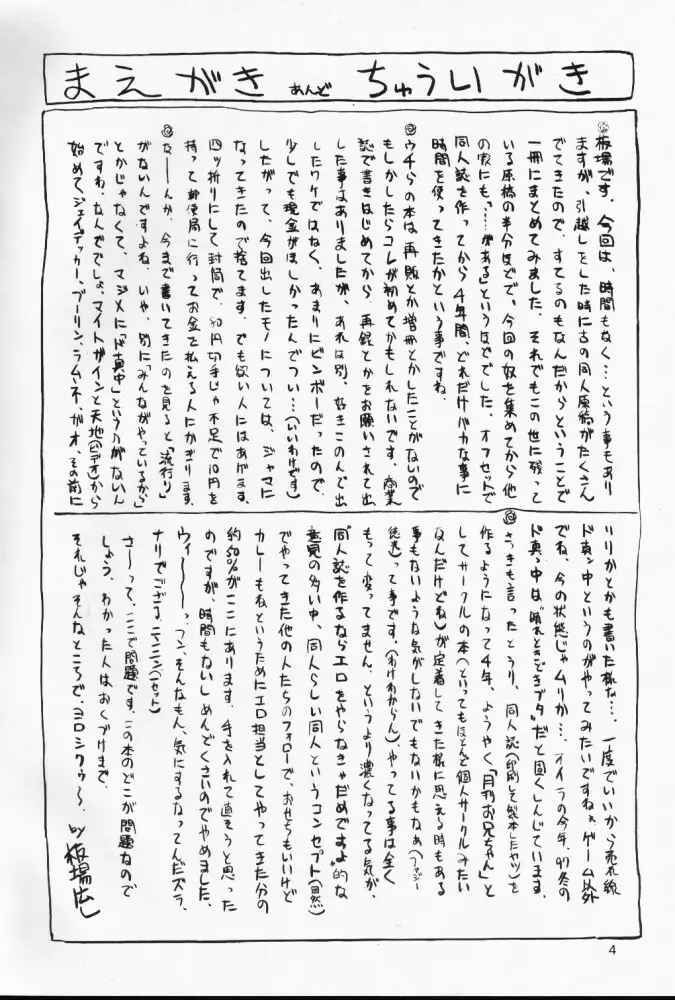 まえがき あんど ちゅういがき
◎板場です。今回は、時間もなく…という事もあり
ますが、引越しをした時に古の同人原稿がたくさん
でてきたので、すてるのもなんだからということで
一冊にまとめてみました。それでもこの世に残って
いる原稿の半分ほどで。今回の奴を集めてから他
の家にも、“……がある”というほどでした。オフセットで
同人誌を作ってから4年間、どれだけバカな事に
時間を使ってきたかという事ですね。
◎ウチらの本は、再販とか増冊とかしたことがないので
もしかしたらコレが初めてかもしれないです。商業
誌で書きはじめてから、再録とかをお願いされて出
した事はありましたが、あれは別。好きこのんで出
したワケではなく、あまりにビンボーだったので、
少しでも現金がほしかったんでつい…(いいわけです)
したがって、今回出したモノについては、ジャマに
なってきたので捨てます。でも欲い人にはあげます。
四ッ折りにして封筒で、80円切手じゃ不足で10円を
持って郵便局に行ってお金を払える人にかぎります。
◎なーんか、今まで書いてきたのを見ると「流行り」
がないんですよね。いや、別に「みんながやっているから」
とかじゃなくて、マジメに「ド真中」というのがないん
ですわ。なんででしょ。マイトガインと天地(ビデオ)から
始めて、ジェイデッカー、プーリン、ラムネ、ガオ、その前に
リリカとかも書いた様な…。一度でいいから売れ線
ド真ン中というのがやってみたいですねぇ。ゲーム以外
でね、今の状態じゃムリか…。オイラの今年、97冬の
ド真っ中は“晴れときどきブタ”だと固くしんじています。
◎さっきも言ったとうり、同人誌(印刷して製本したヤツ)を
作るようになって4年、ようやく「月刊お兄ちゃん」と
してサークルの本(といってもほとんど個人サークルみたい
なんだけどね)が定着してきた様に思える時もある
事もないような気がしないでもないかもなぁ(ファジー
徒送)って事です。(わけわからん)。やってる事は全く
もって変ってません。というより濃くなってる気が。
“同人誌を作るならエロをやらなきゃだめですよ”的な
意見の多い中、同人らしい同人というコンセプト(自然)
でやってきた他の人たちのフォローで、おせちもいいけど
カレーもねというためにエロ担当としてやってきた分の
約50%がここにあります。手を入れて直そうと思った
のですが、時間もないしめんどくさいのでやめました。
ウィ〜〜〜っ、フン、そんなもん、気にするなってんだズラ。
ナリでござる。ニンニン(7セット)
さ〜って、ここで問題です。この本のどこが問題なので
しょう。わかった人はおくづけまで。
それじゃそんなところで、ヨロシクゥ〜。 by 板場広し
4